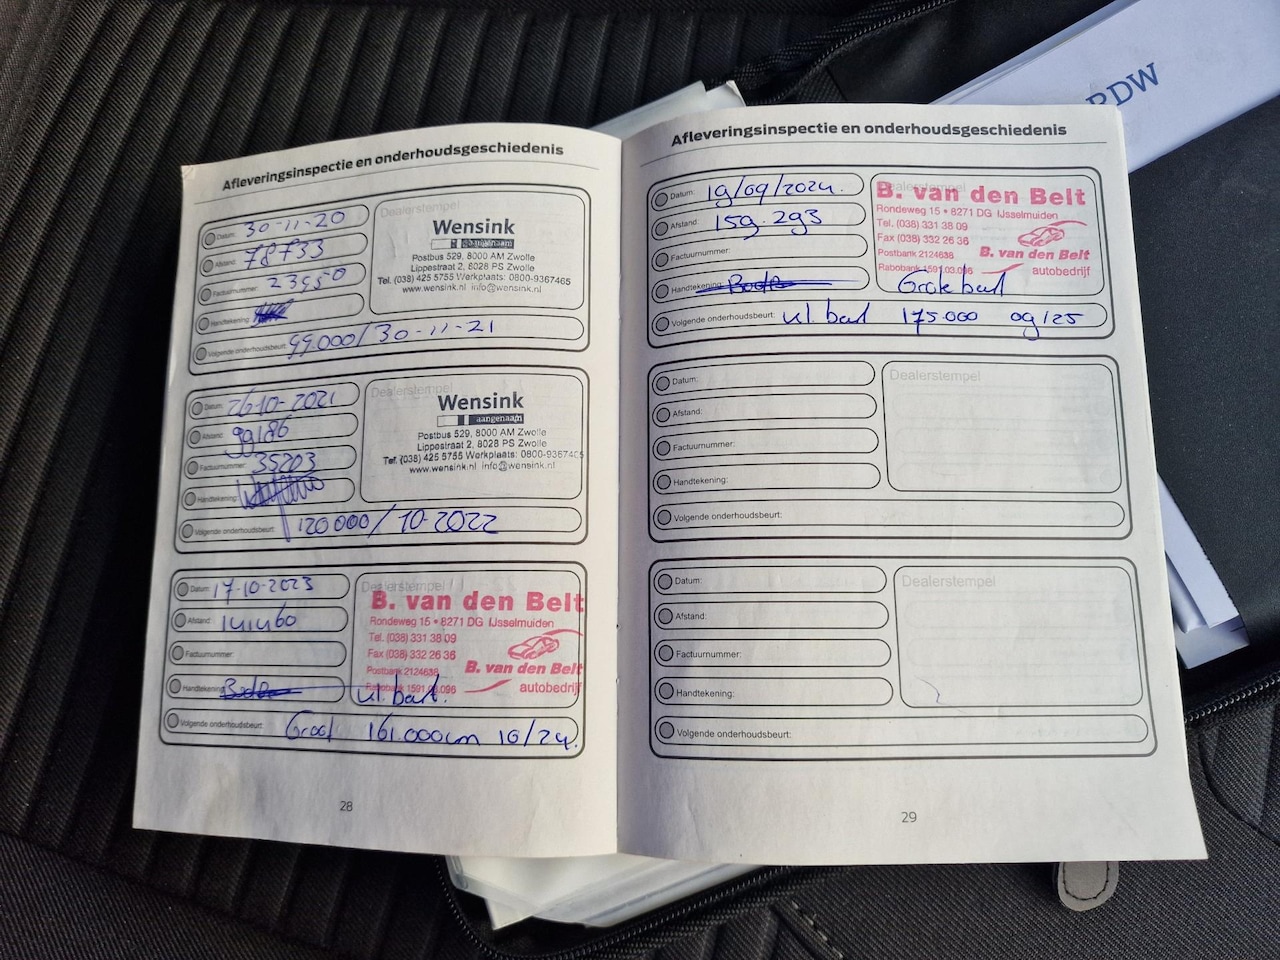 RDW
Afleveringsinspectie en onderhoudsgeschiedenis
Datum: 30-11-20
Afstand: 78733
Factuurnummer: 23950
Handtekening:
Volgende onderhoudsbeurt: 99.000/ 30-11-21
Dealerstempel
Wensink
aangenaam
Postbus 529, 8000 AM Zwolle
Lippestraat 2, 8028 PS Zwolle
Tel. (038) 425 5755 Werkplaats: 0800-9367465
www.wensink.nl info@wensink.nl
Datum: 26-10-2021
Afstand: 99186
Factuurnummer: 35203
Handtekening:
Volgende onderhoudsbeurt: 120000/10-2022
Dealerstempel
Wensink
aangenaam
Postbus 529, 8000 AM Zwolle
Lippestraat 2, 8028 PS Zwolle
Tel. (038) 425 5755 Werkplaats: 0800-9367465
www.wensink.nl info@wensink.nl
Datum: 17-10-2023
Afstand: 141460
Factuurnummer:
Handtekening:
Volgende onderhoudsbeurt: Groot 161.000km 10/24.
Dealerstempel
B. van den Belt
Rondeweg 15 • 8271 DG IJsselmuiden
Tel. (038) 331 38 09
Fax (038) 332 26 36
Postbank 2124638
B. van den Belt
Rabobank 1591.03.096
autobedrijf
kl. beurt.
28
Afleveringsinspectie en onderhoudsgeschiedenis
Datum: 19/09/2024.
Afstand: 159.293
Factuurnummer:
Handtekening:
Volgende onderhoudsbeurt: kl. beurt 175.000 09/25
Dealerstempel
B. van den Belt
Rondeweg 15 • 8271 DG IJsselmuiden
Tel. (038) 331 38 09
Fax (038) 332 26 36
Postbank 2124638
B. van den Belt
Rabobank 1591.03.096
autobedrijf
Grote beurt
Datum:
Afstand:
Factuurnummer:
Handtekening:
Volgende onderhoudsbeurt:
Dealerstempel
Datum:
Afstand:
Factuurnummer:
Handtekening:
Volgende onderhoudsbeurt:
Dealerstempel
29